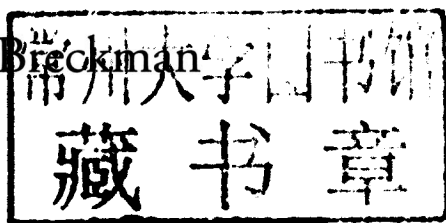 Breckman
常州大学图书馆
藏书章